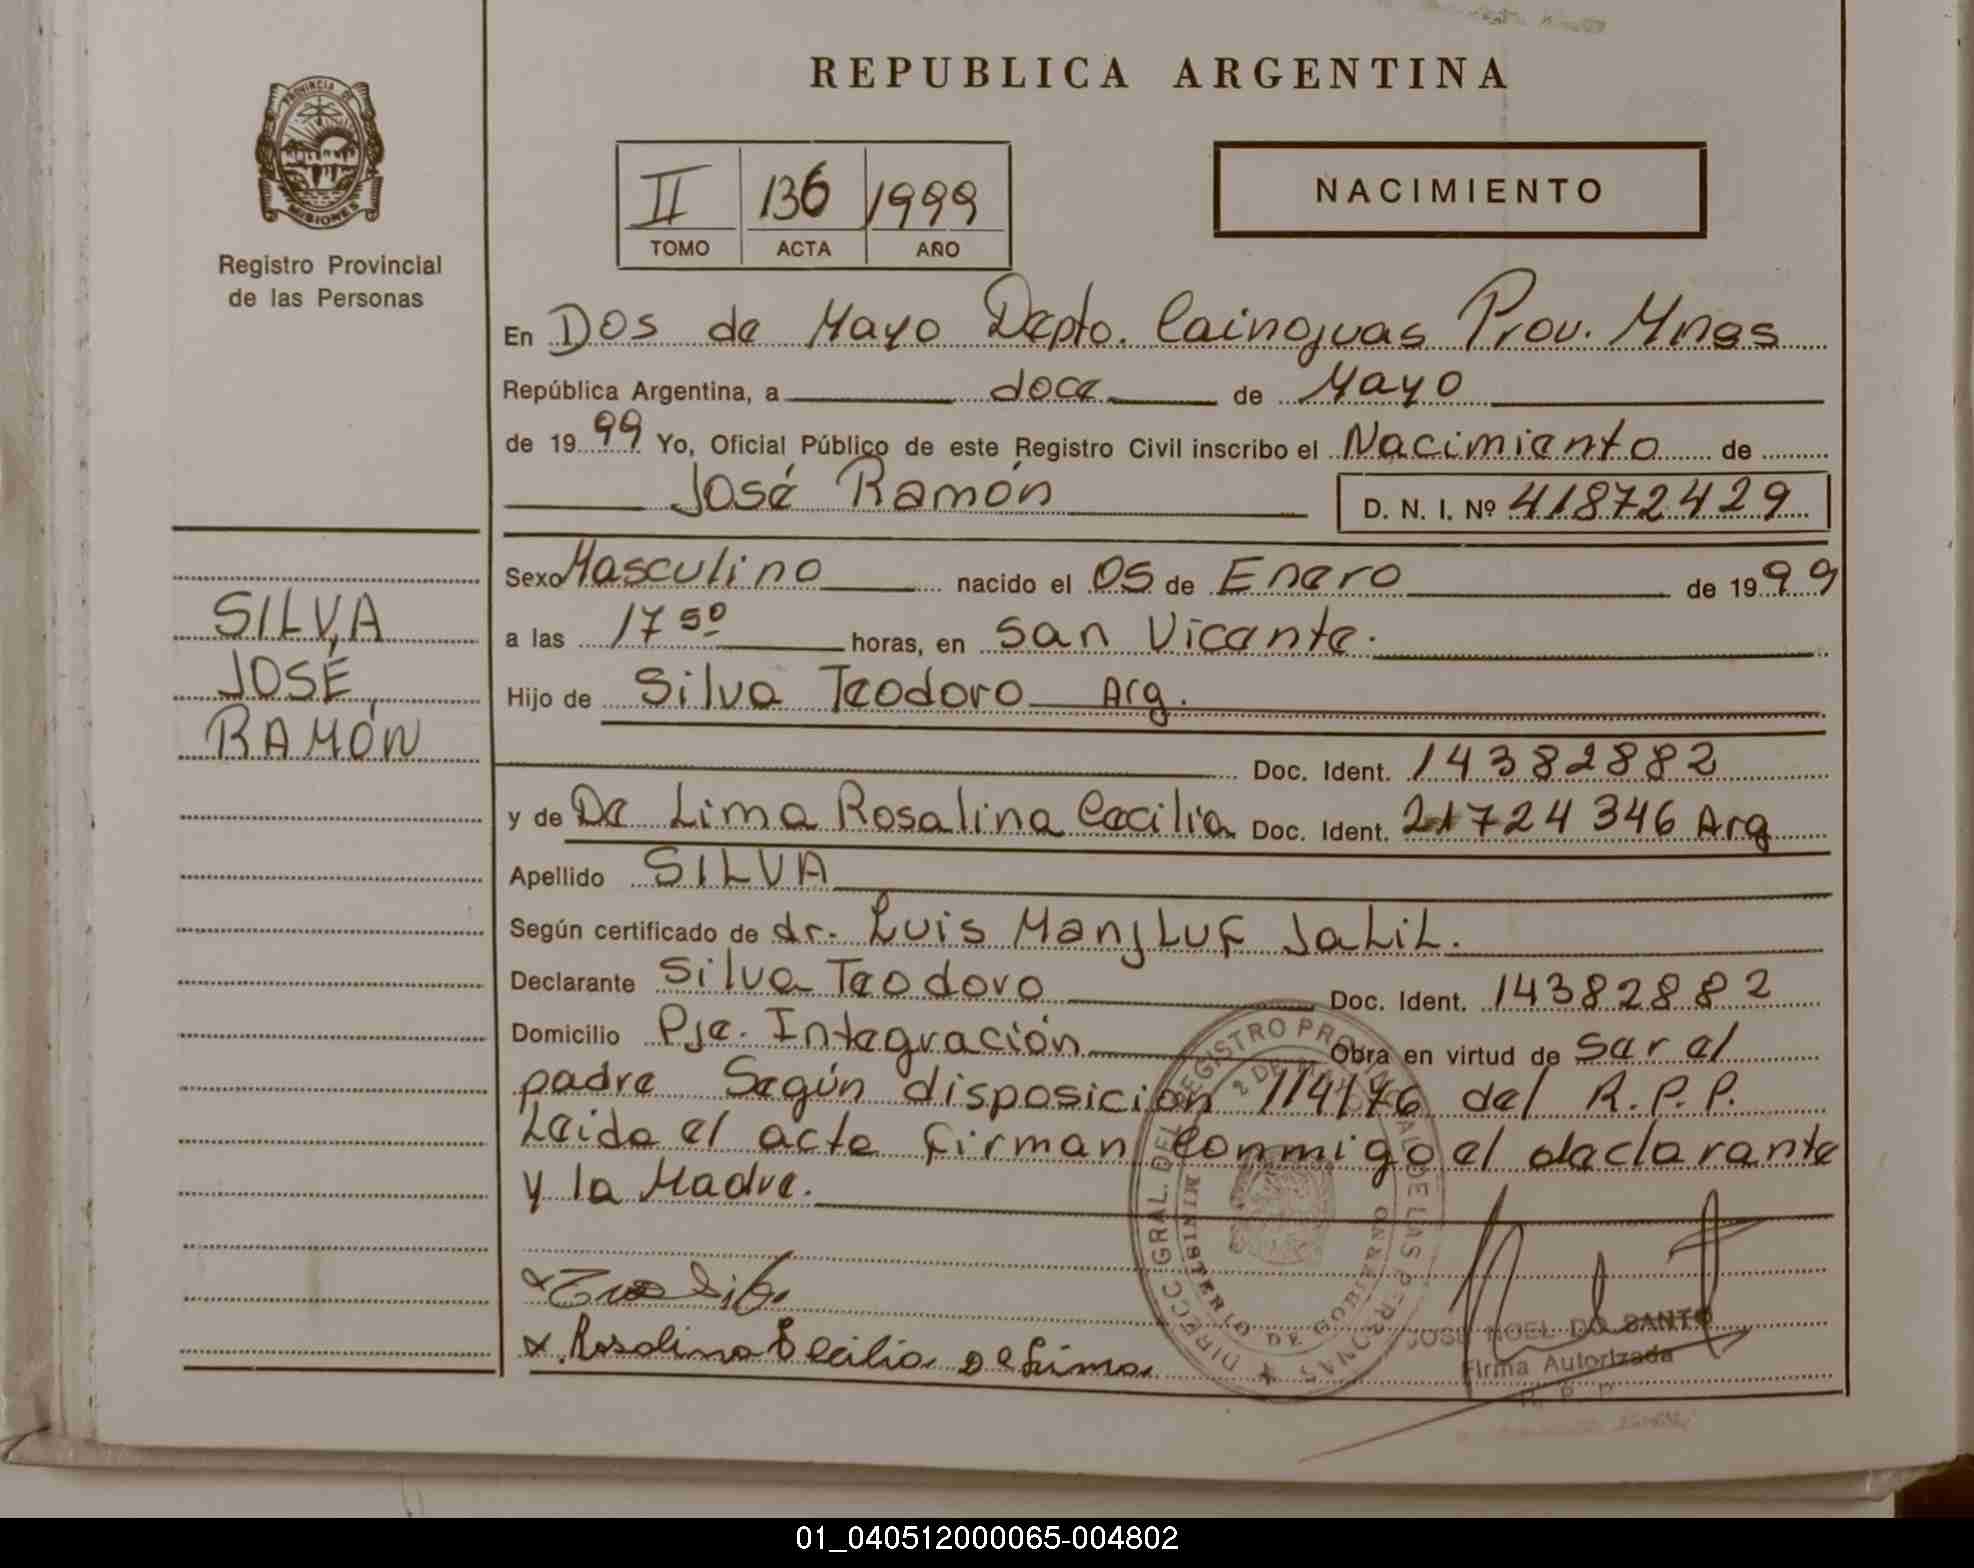 REPUBLICA ARGENTINA
PROVINCIA DE
MISIONES
Registro Provincial
de las Personas
II 136 1999
TOMO ACTA AÑO
NACIMIENTO
En Dos de Mayo Depto. Cainguas Prov. Mnes
República Argentina, a doce de Mayo
de 1999 Yo, Oficial Público de este Registro Civil inscribo el Nacimiento de
José Ramón D. N. I. Nº 41872429
SILVA
JOSÉ
RAMÓN
Sexo Masculino nacido el 05 de Enero de 1999
a las 17 50 horas, en San Vicente.
Hijo de Silva Teodoro Arg.
Doc. Ident. 14382882
y de De Lima Rosalina Cecilia Doc. Ident. 21724346 Arg
Apellido SILVA
Según certificado de dr. Luis Manjluf Jalil.
Declarante Silva Teodoro Doc. Ident. 14382882
Domicilio Pje. Integración Obra en virtud de Ser el
padre Según disposición 114/76 del R.P.P.
Leida el acta firman conmigo el declarante
y la Madre.
Rosalina Cecilia De Lima
DIRECC. GRAL. DEL REGISTRO PROVINCIAL DE LAS PERSONAS
MINISTERIO DE GOBIERNO
2 DE MAYO
JOSE NOEL DO SANTO
Firma Autorizada
01_040512000065-004802